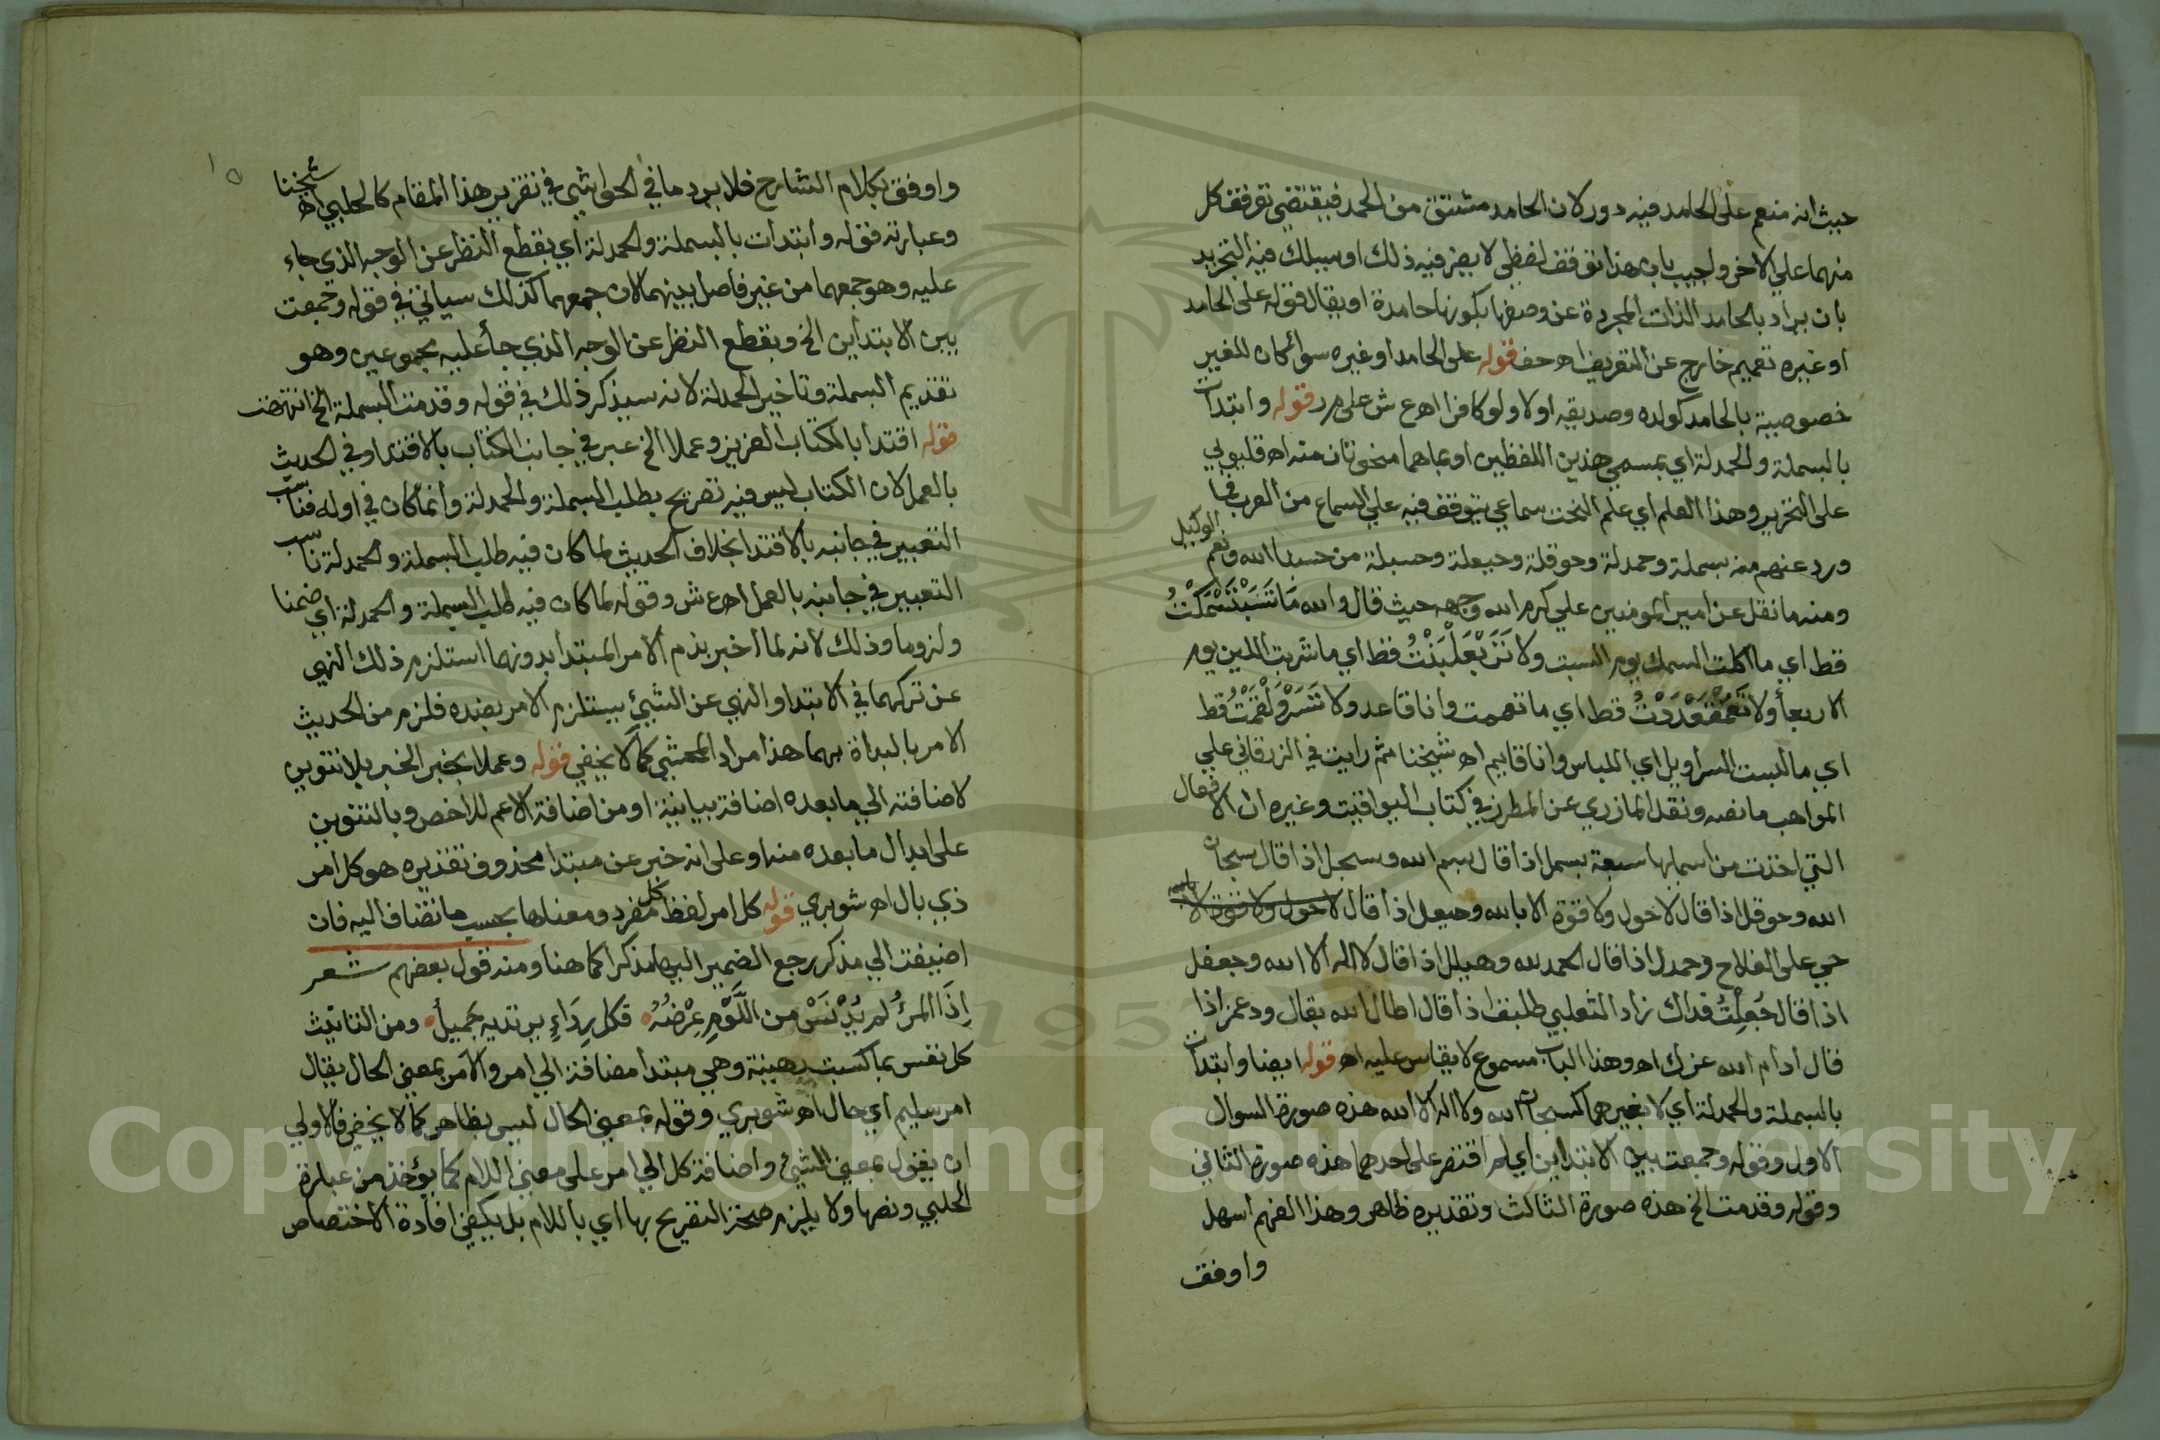 حيث انه منعم على الحامد فيه دور لان الحامد مشتق من الحمد فيقتضي توقف كل
منهما على الاخر واجيب بان هذا توقف لفظي لا يضر فيه ذلك او سبيلك فيه التجريد
بان يراد بالحامد الذات المجردة عن وصفها بكونها حامدة او يقال قوله على الحامد
او غيره تعميم خارج عن التعريف اه حف قوله على الحامد او غيره سوا كان للغير
خصوصية بالحامد كولده وصديقه اولا ولو كافرا اه ع ش على م ر قوله وابتدات
بالبسملة والحمدلة اي بمسمي هذين اللفظين او بهما هما منحوتان منه اه قليوبي
على التحرير وهذا العلم اي علم النحت سماعي يتوقف فيه علي السماع من العرب فما
ورد عنهم منه بسملة وحمدلة وحوقلة وحيعلة وحسبلة من حسبنا الله ونعم الوكيل
ومنه ما نقل عن امير المومنين علي كرم الله وجهه حيث قال والله مَا تَسَبْتَسْمَكْتُ
قط اي ما اكلت السمك يوم السبت ولا تَرَبْعَلْبَنْتُ قط اي ما شربت اللبن يوم
الاربعا ولا تَعَمْقَعْدَدْتُ قط اي ما تعممت وانا قاعد ولا تَسَرْوَلْقَمْتُ قط
اي ما لبست السراويل اي اللباس وانا قايم اه شيخنا ثم رايت في الزرقاني علي
المواهب ما نصه ونقل المازري عن المطرز في كتاب اليواقيت وغيره ان الافعال
التي اخذت من اسمايها سبعة بسمل اذا قال بسم الله وسبحل اذا قال سبحان
الله وحوقل اذا قال لا حول ولا قوة الا بالله وحيعل اذا قال لا حول ولا قوة الا بالله
حي على الفلاح وحمدل اذا قال الحمد لله وهيلل اذا قال لا اله الا الله وجعفل
اذا قال جُعِلْتُ فداك زاد الثعلبي طلبق اذا قال اطال الله بقال ودمعز اذا
قال ادام الله عزك اه وهذا الباب مسموع لا يقاس عليه اه قوله ايضا وابتدات
بالبسملة والحمدلة اي لا بغيرهما كسبحان الله ولا اله الا الله هذه صورة السوال
الاول وقوله وجمعت بين الابتداين اي لم اقتصر على احدهما هذه صورة الثاني
وقوله وقدمت الخ هذه صورة الثالث وتقديره ظاهر وهذا الفهم اسهل
واوفق
١٥
واوفق بكلام الشارح فلا يرد ما في الحواشي في تقرير هذا المقام كالحلبي اه شيخنا
وعبارته قوله وابتدات بالبسملة والحمدلة اي بقطع النظر عن الوجه الذي جاء
عليه وهو جمعهما من غير فاصل بينهما لان جمعهما كذلك سياتي في قوله وجمعت
بين الابتداين الخ وبقطع النظر عن الوجه الذي جا عليه مجموعين وهو
تقديم البسملة وتاخير الحمدلة لانه سيذكر ذلك في قوله وقدمت البسملة الخ انتهت
قوله اقتدا بالكتاب العزيز وعملا الخ عبر في جانب الكتاب بالاقتدا وفي الحديث
بالعمل لان الكتاب ليس فيه تصريح بطلب البسملة والحمدلة وانما كان في اوله فناسب
التعبير في جانبه بالاقتدا بخلاف الحديث لما كان فيه طلب البسملة والحمدلة ناسب
التعبير في جانبه بالعمل اه ع ش وقوله لما كان فيه طلب البسملة والحمدلة اي ضمنا
ولزوما وذلك لانه لما اخبر بذم الامر المبتدا بدونهما استلزم ذلك النهي
عن تركهما في الابتدا والنهي عن الشيئ يستلزم الامر بضده فلزم من الحديث
الامر بالبداة بهما هذا مراد المحشي كما لا يخفي قوله وعملا بخبر الخبر بلا تنوين
لاضافته الي ما بعده اضافة بيانية او من اضافة الاعم للاخص وبالتنوين
على ابدال ما بعده منه او على انه خبر عن مبتدا محذوف تقديره هو كل امر
ذي بال اه شوبري قوله كل امر لفظ كل مفرد ومعناها بحسب ما تضاف اليه فان
اضيفت الي مذكر رجع الضمير اليها مذكرا كما هنا ومنه قول بعضهم شعر
اِذَا المرءُ لم يُدْنَسْ من اللَّوْمِ عِرْضُهُ فكل رِدَاءٍ يرتديه جَميلُ ومن التانيث
كل نفس بما كسبت رهينة وهي مبتدا مضافة الي امر والامر بمعني الحال يقال
امر سليم اي حال اه شوبري وقوله بمعني الحال ليس بظاهر كما لا يخفي فالاولي
ان يقول بمعني الشيئ واضافة كل الي امر على معني اللام كما يؤخذ من عبارة
الحلبي ونصها ولا يلزم صحة التصريح بها اي باللام بل يكفي افادة الاختصاص
Copyright © King Saud University
1957